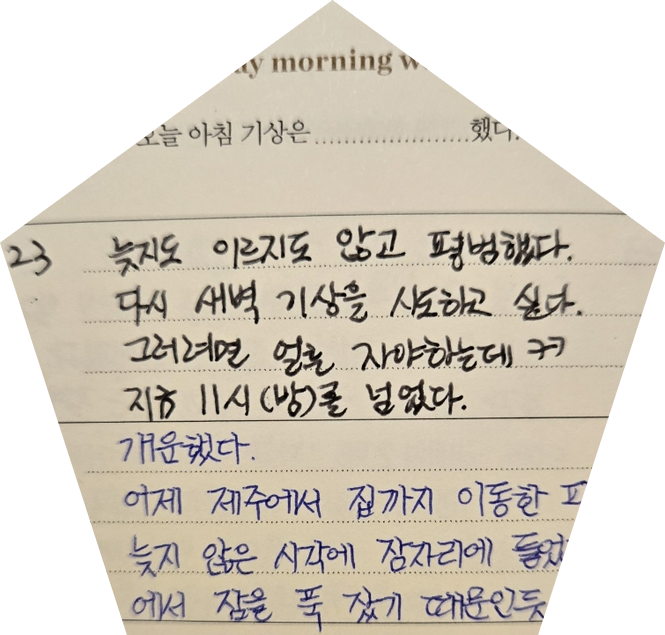 morning
오늘 아침 기상은 ........................ 했다.
23 늦지도 이르지도 않고 평범했다.
다시 새벽 기상을 시도하고 싶다.
그러려면 얼른 자야하는데 ㅋㅋ
지금 11시(밤)를 넘었다.
개운했다.
어제 제주에서 집까지 이동한
늦지 않은 시각에 잠자리에 들었
에서 잠을 푹 잤기 때문인듯